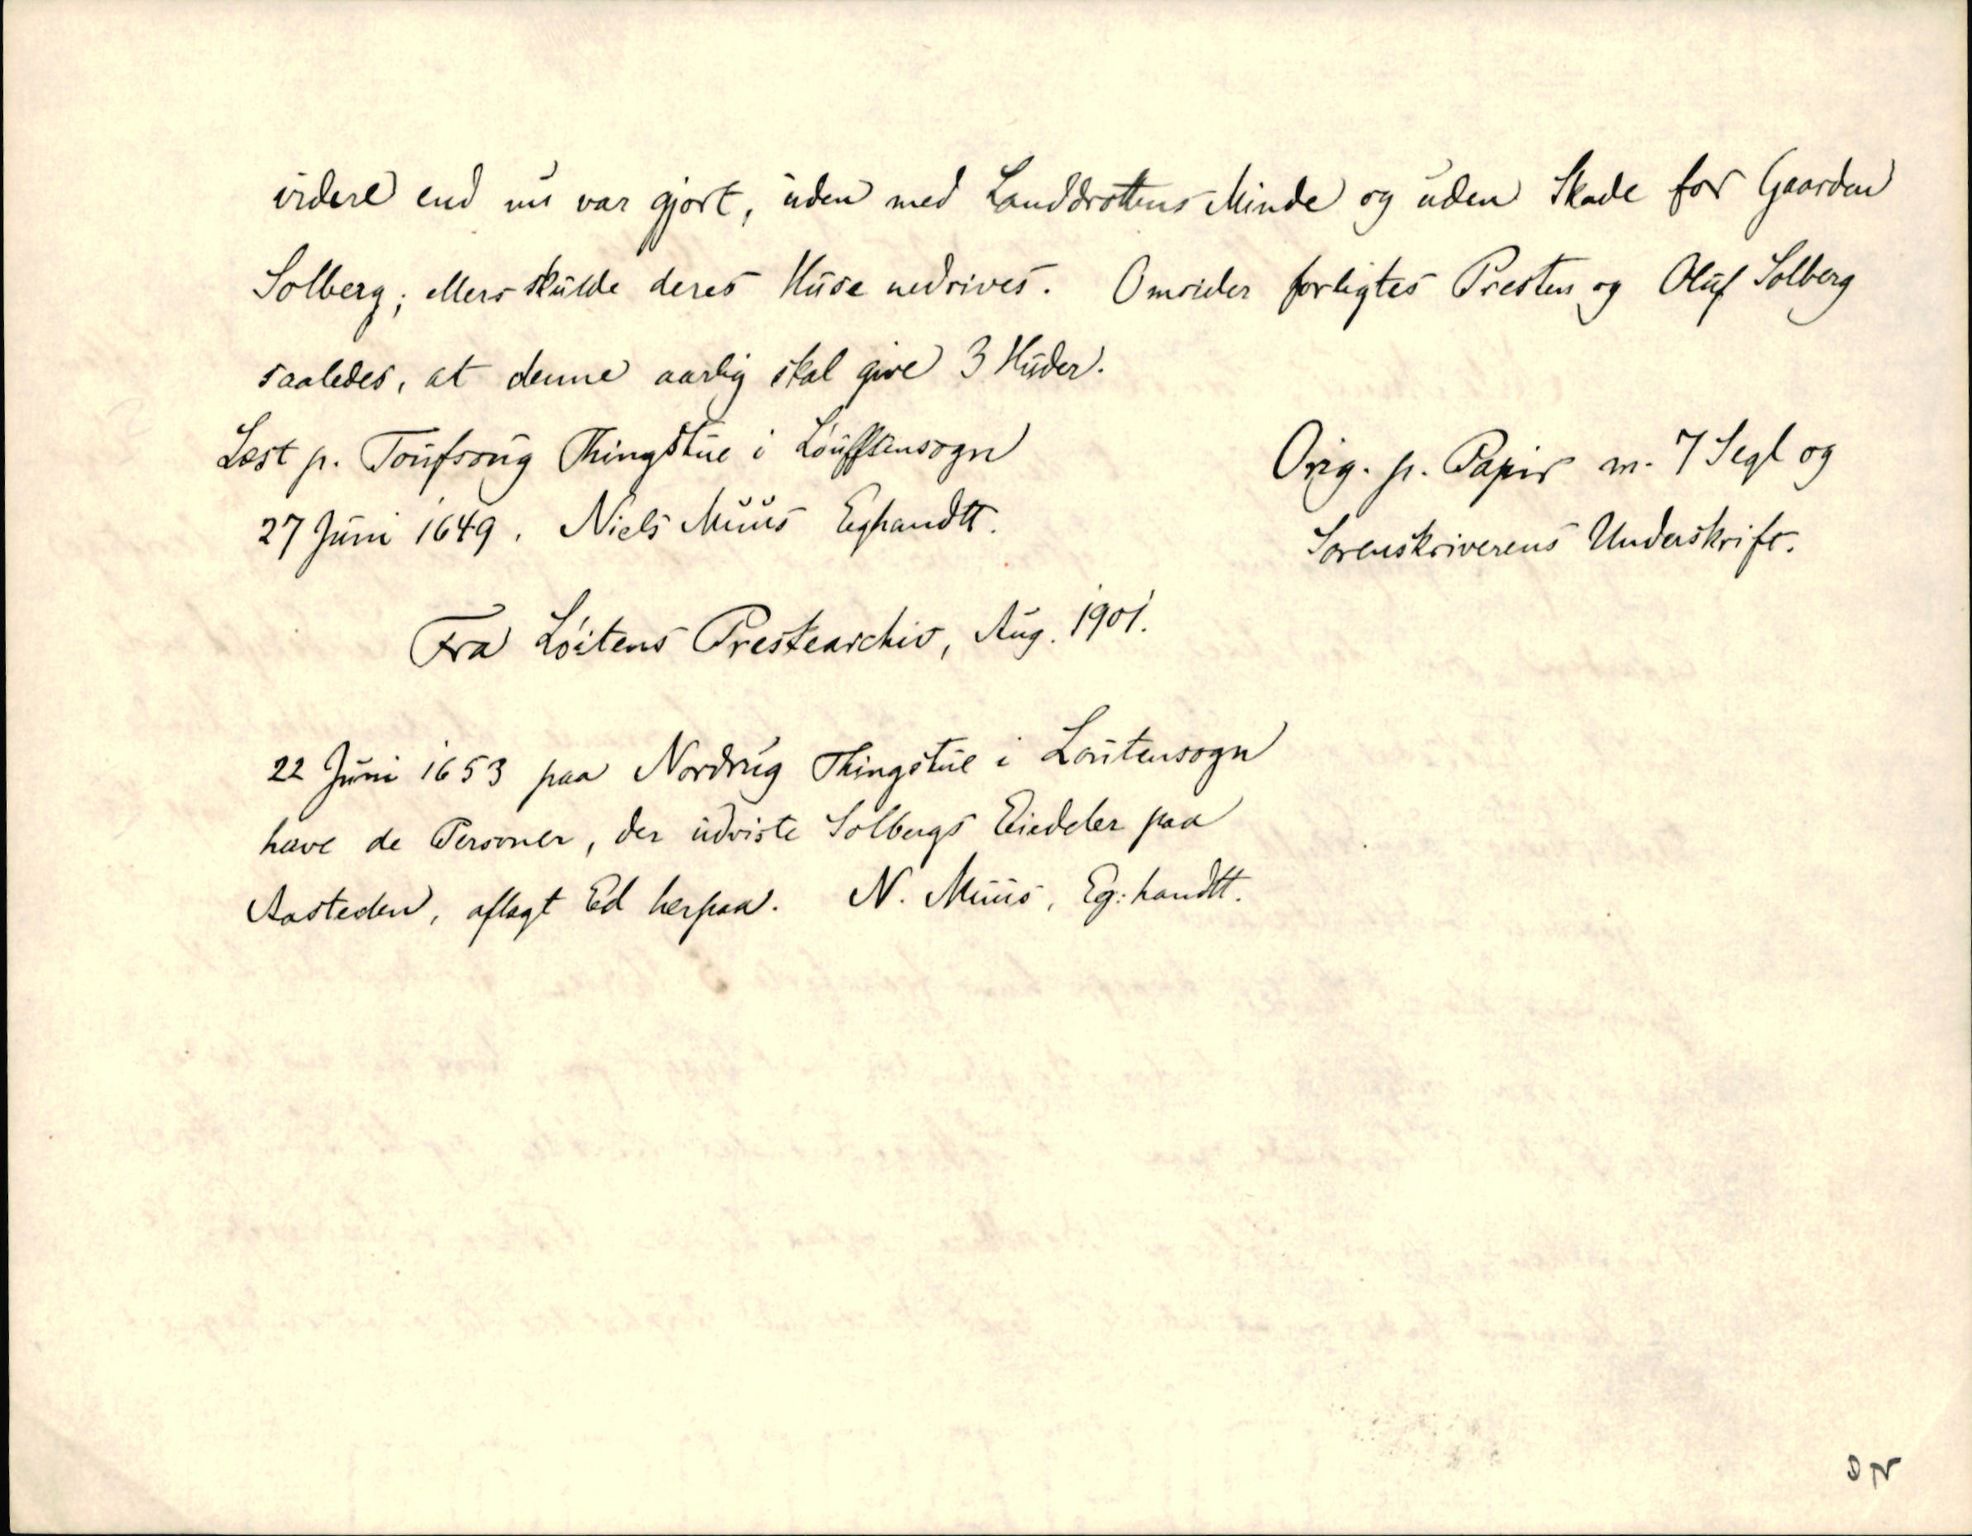 videre end nu var gjort, uden med Landdrottens Minde og uden Skade for Gaarden
Solberg; ellers skulde deres Huse nedrives. Omsider forligtes Presten og Oluf Solberg
saaledes, at denne aarlig skal give 3 Huder.
Læst p. Toufsoug Thingstue i Löuffsensogn
27 Juni 1649. Niels Muus Eghandtt.
Orig. p. Papir m. 7 Segl og
Sorenskriverens Underskrift.
Fra Løitens Prestearchiv, Aug. 1901.
22 Juni 1653 paa Nordrug Thingstue i Loutensogn
have de Personer, der udviste Solbergs Eiedeler paa
Aasteden, aflagt Ed herpaa. N. Muus, Eg: handtt.
DN